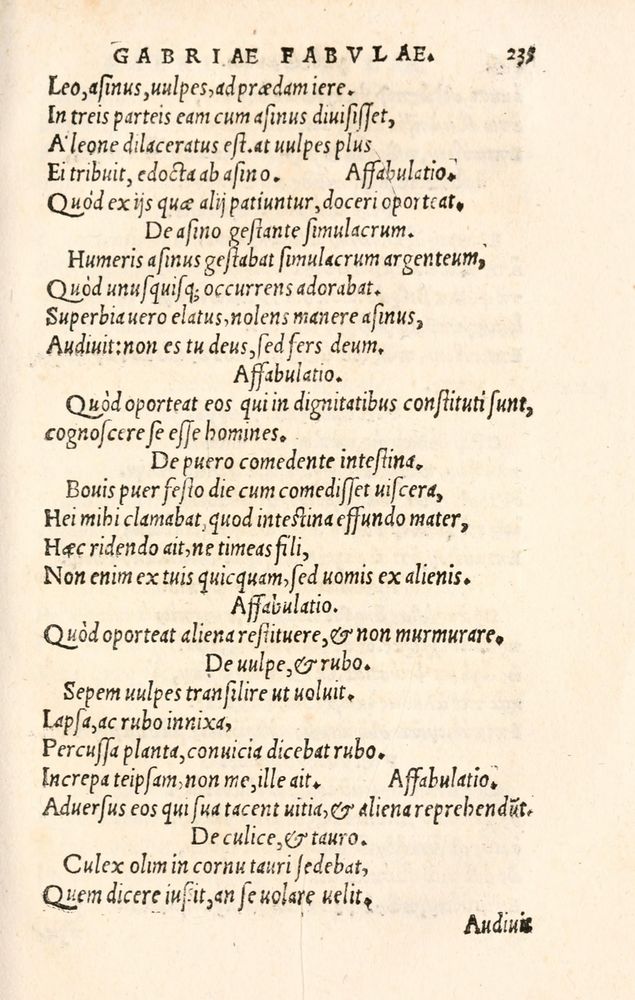 GABRIAE FABVLAE. 235
Leo, asinus, uulpes, ad prædam iere.
In treis parteis eam cum asinus diuisiſſet,
A' leone dilaceratus eſt. at uulpes plus
Ei tribuit, edocta ab asino. Affabulatio.
Quòd ex ijs quæ alij patiuntur, doceri oporteat.
De asino geſtante simulacrum.
Humeris asinus geſtabat simulacrum argenteum,
Quòd unusquisq; occurrens adorabat.
Superbia uero elatus, nolens manere asinus,
Audiuit: non es tu deus, ſed fers deum.
Affabulatio.
Quòd oporteat eos qui in dignitatibus conſtituti ſunt,
cognoſcere ſe eſſe homines.
De puero comedente inteſtina.
Bouis puer feſto die cum comediſſet uiſcera,
Hei mihi clamabat, quod inteſtina effundo mater,
Hæc ridendo ait, ne timeas fili,
Non enim ex tuis quicquam, ſed uomis ex alienis.
Affabulatio.
Quòd oporteat aliena reſtituere, & non murmurare.
De uulpe, & rubo.
Sepem uulpes tranſilire ut uoluit.
Lapſa, ac rubo innixa,
Percuſſa planta, conuicia dicebat rubo.
Increpa teipſam, non me, ille ait. Affabulatio.
Aduersus eos qui ſua tacent uitia, & aliena reprehendũt.
De culice, & tauro.
Culex olim in cornu tauri ſedebat,
Quem dicere iuſſit, an ſe uolare uelit.
Audiuit